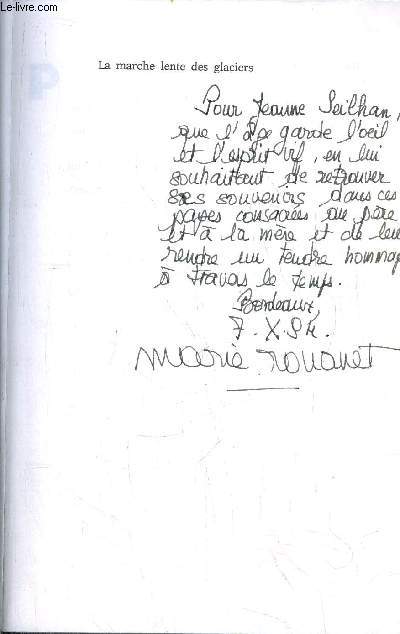 e-livre.com
La marche lente des glaciers
Pour Jeanne Seilhan,
que l'âge garde l'oeil
et l'esprit vif, en lui
souhaittant de retrouver
ses souvenirs dans ces
pages consacrées au père
et à la mère et de leu
rendre un tendre hommag
à travers le temps.
Bordeaux,
7.X.94.
Marie Rouanet